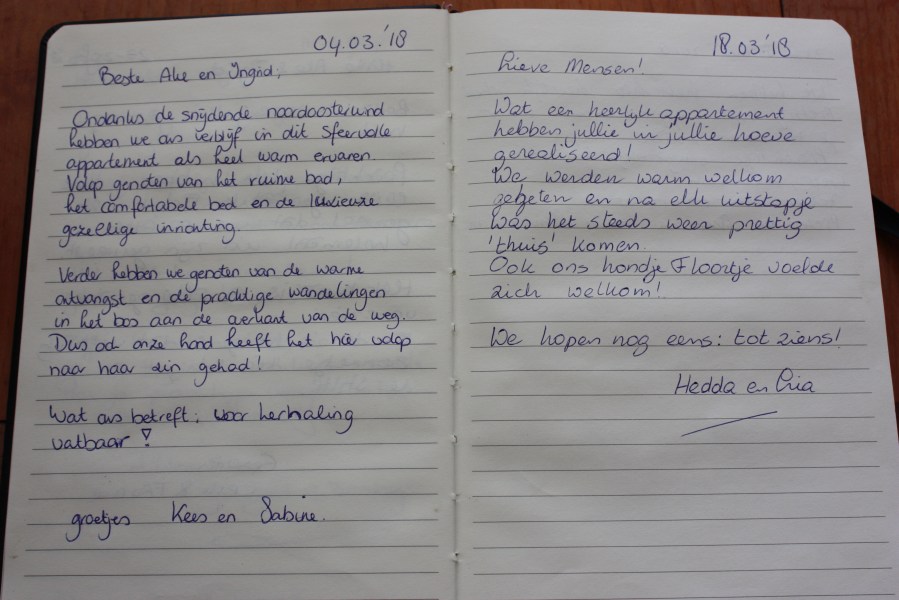 04.03.'18
Beste Ake en Ingrid,
Ondanks de snijdende noordoostenwind
hebben we ons verblijf in dit sfeervolle
appartement als heel warm ervaren.
Volop genoten van het ruime bad,
het comfortabele bed en de luxieuze
gezellige inrichting.
Verder hebben we genoten van de warme
ontvangst en de prachtige wandelingen
in het bos aan de overkant van de weg.
Dus ook onze hond heeft het hier volop
naar haar zin gehad!
Wat ons betreft: voor herhaling
vatbaar!
groetjes Kees en Sabine.
18.03.'18
Lieve Mensen!
Wat een heerlijk appartement
hebben jullie in jullie hoeve
gerealiseerd!
We werden warm welkom
geheten en na elk uitstapje
was het steeds weer prettig
'thuis' komen.
Ook ons hondje Floortje voelde
zich welkom!
We hopen nog eens: tot ziens!
Hedda en Ria